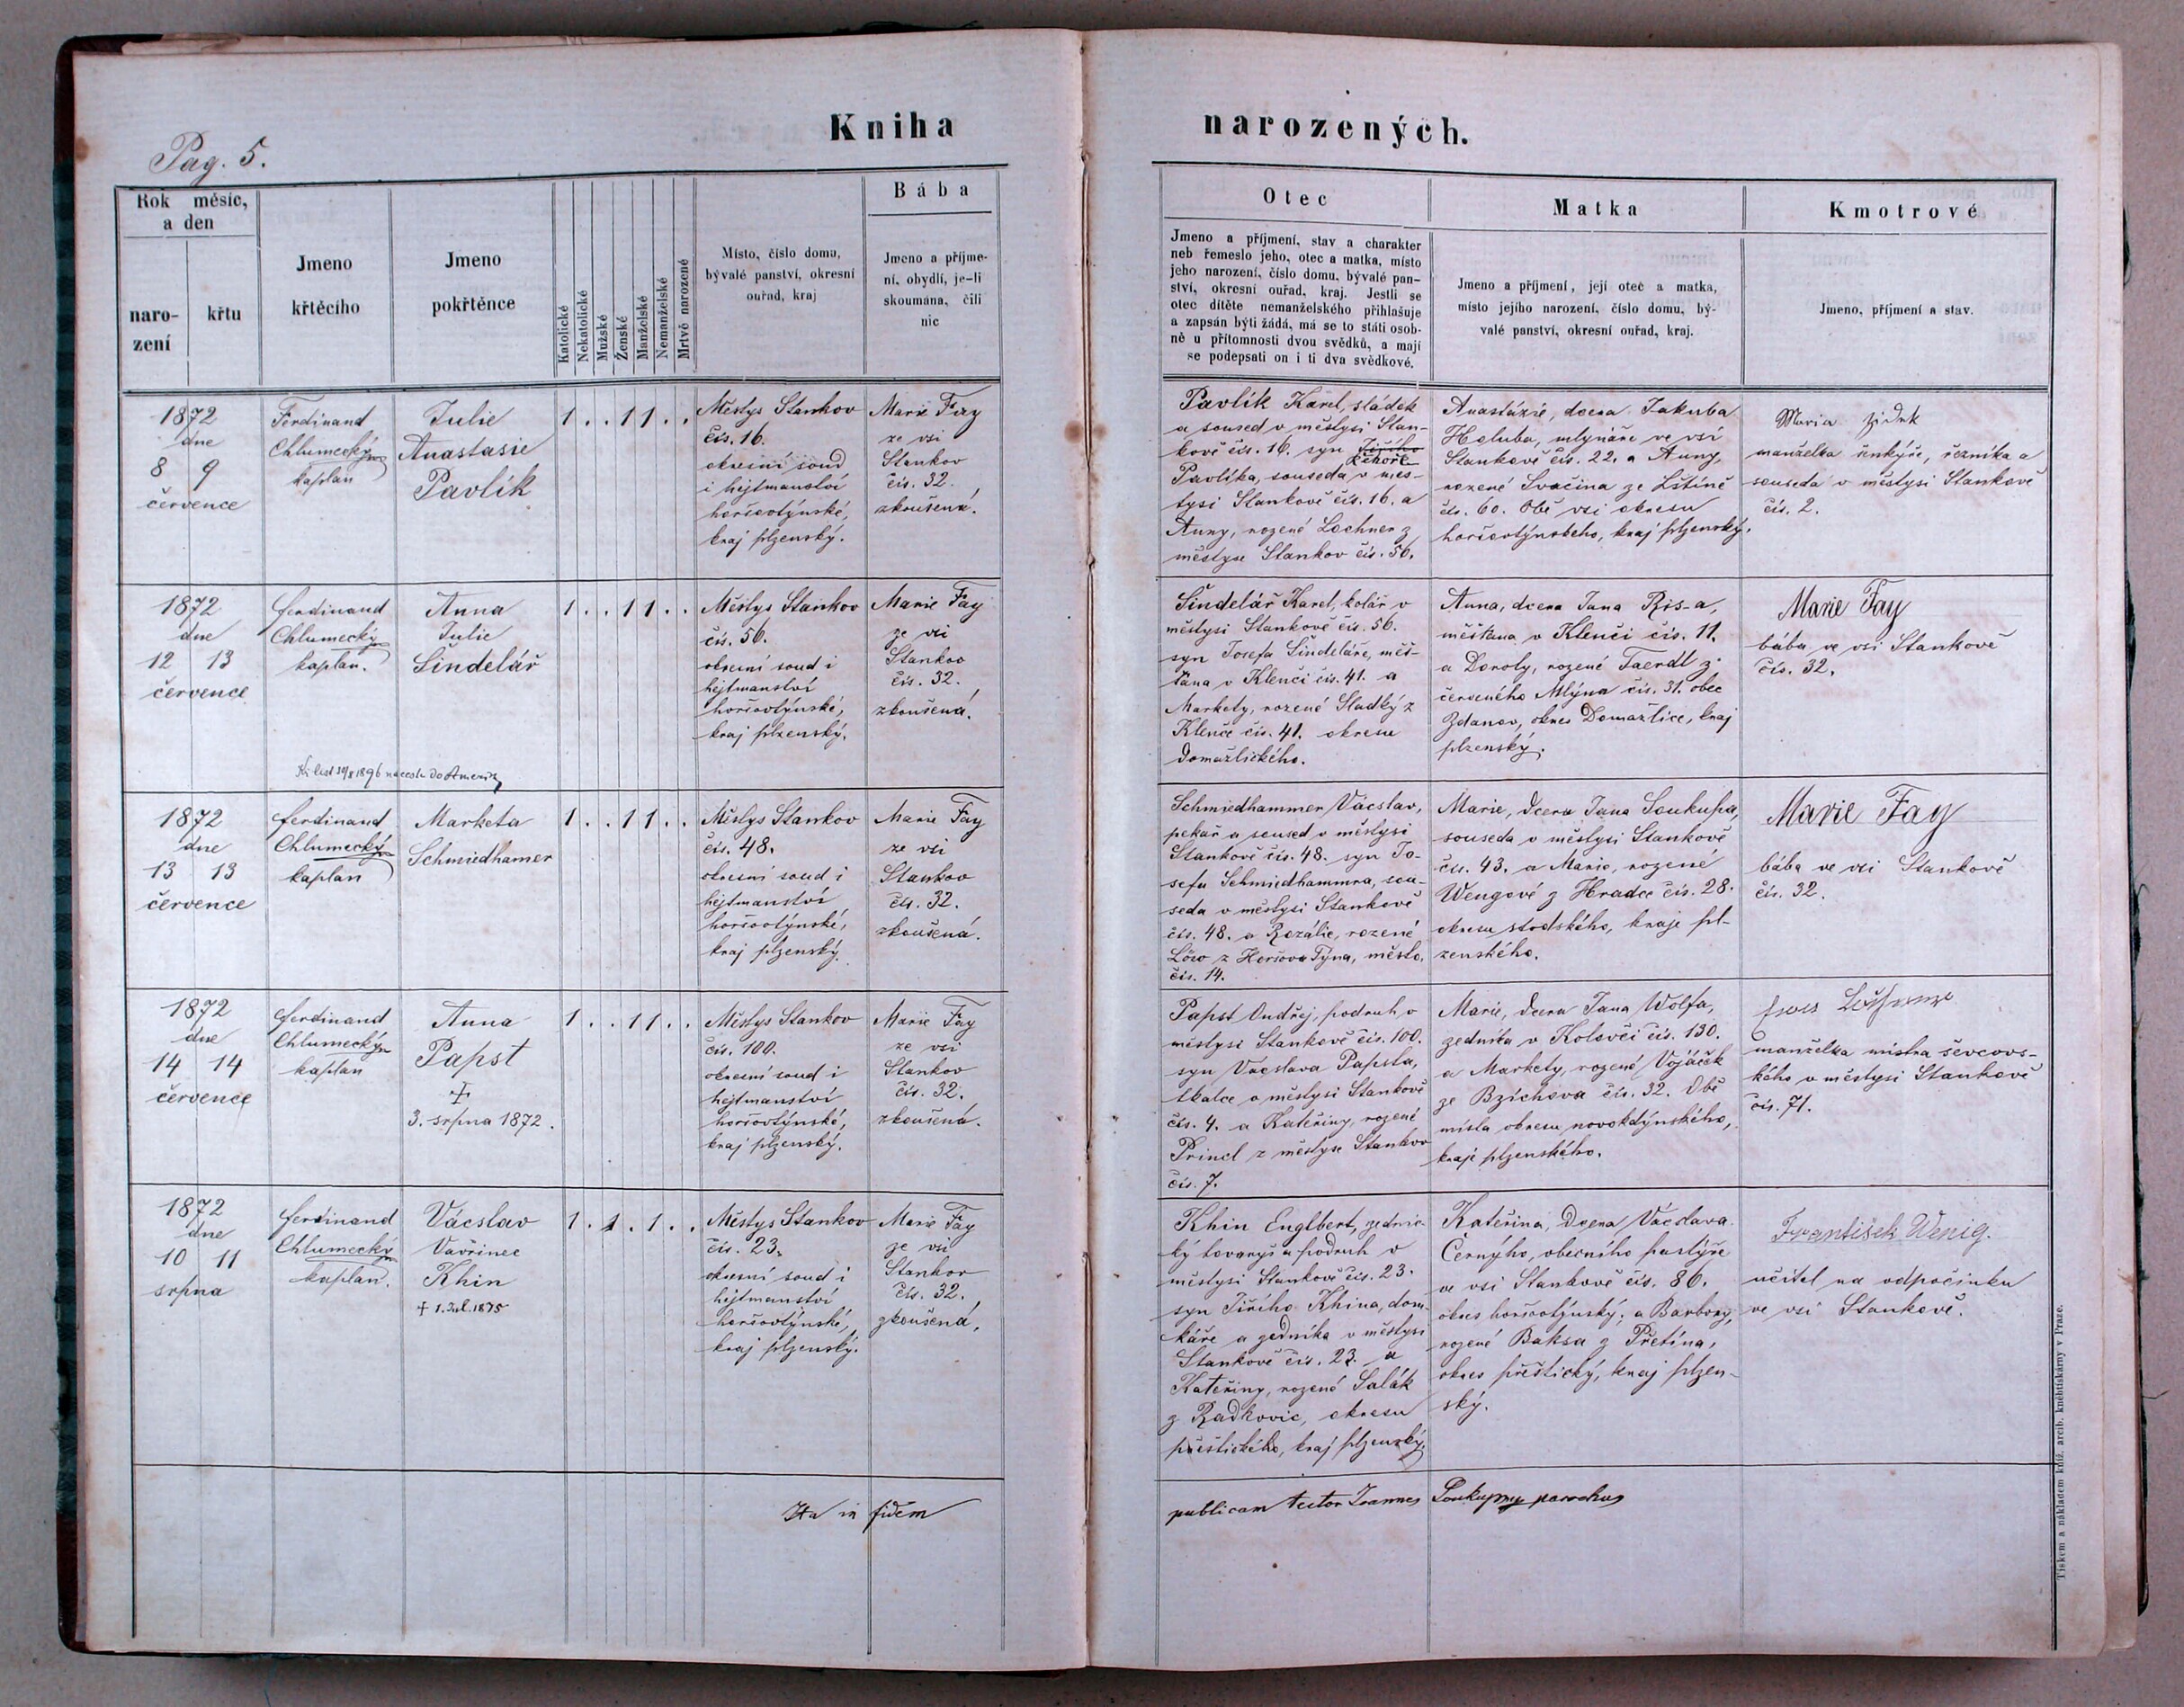 Kniha narozených.
Pag. 5.
Rok měsíc, a den
naro-
zení
křtu
Jmeno
křtěcího
Jmeno
pokřtěnce
Katolické
Nekatolické
Mužské
Ženské
Manželské
Nemanželské
Mrtvě narozené
Místo, číslo domu,
bývalé panství, okresní
ouřad, kraj
Bába
Jmeno a příjme-
ní, obydlí, je-li
skoumána, čili
nic
Otec
Jmeno a příjmení, stav a charakter
neb řemeslo jeho, otec a matka, místo
jeho narození, číslo domu, bývalé pan-
ství, okresní ouřad, kraj. Jestli se
otec dítěte nemanželského přihlašuje
a zapsán býti žádá, má se to státi osob-
ně u přítomnosti dvou svědků, a mají
se podepsati on i ti dva svědkové.
Matka
Jmeno a příjmení, její otec a matka,
místo jejího narození, číslo domu, bý-
valé panství, okresní ouřad, kraj.
Kmotrové
Jmeno, příjmení a stav.
1872
dne
8 9
července
Ferdinand
Chlumecký
kaplan
Julie
Anastasie
Pavlík
1 . . 1 1 . .
Městys Stankov
čís. 16.
okresní soud
i hejtmanství
horšovtýnské,
kraj plzenský.
Marie Fay
ze vsi
Stankov
čís. 32.
zkoušená.
Pavlík Karel, sládek
a soused v městysi Stan-
kově čís. 16. syn Jiřího
Řehoře
Pavlíka, souseda v měs-
tysi Stankově čís. 16. a
Anny, rozené Lochner z
městyse Stankov čís. 56.
Anastázie, dcera Jakuba
Holuba, mlynáře ve vsi
Stankově čís. 22. a Anny,
rozené Svačina ze Lštíně
čís. 60. Obě vsi okresu
horšovtýnského, kraj plzenský.
Maria Zidek
manželka šenkýře, řezníka a
souseda v městysi Stankově
čís. 2.
1872
dne
12 13
července
Ferdinand
Chlumecký
kaplan.
Anna
Julie
Šindelář
1 . . 1 1 . .
Městys Stankov
čís. 56.
okresní soud i
hejtmanství
horšovtýnské,
kraj plzenský.
Marie Fay
ze vsi
Stankov
čís. 32.
zkoušená.
Šindelář Karel, kolář v
městysi Stankově čís. 56.
syn Josefa Šindeláře, měš-
ťana v Klenčí čís. 41. a
Markety, rozené Sladký z
Klenče čís. 41. okresu
Domažlického.
Anna, dcera Jana Ris-a,
měšťana v Klenči čís. 11.
a Doroty, rozené Taerdl z
červeného Mlýna čís. 31. obec
Zdanov, okres Domažlice, kraj
plzenský.
Marie Fay
bába ve vsi Stankově
čís. 32.
1896 na cestu do Ameriky
1872
dne
13 13
července
Ferdinand
Chlumecký
kaplan
Marketa
Schmiedhamer
1 . . 1 1 . .
Městys Stankov
čís. 48.
okresní soud i
hejtmanství
horšovtýnské,
kraj plzenský.
Marie Fay
ze vsi
Stankov
čís. 32.
zkoušená.
Schmiedhammer Vácslav,
pekař a soused v městysi
Stankově čís. 48. syn Jo-
sefa Schmiedhammra, sou-
seda v městysi Stankově
čís. 48. a Rozálie, rozené
Löw z Horšova Týna, město,
čís. 14.
Marie, dcera Jana Soukupa,
souseda v městysi Stankově
čís. 43. a Marie, rozené
Wengové z Hradce čís. 28.
okresu stodského, kraje pl-
zenského.
Marie Fay
bába ve vsi Stankově
čís. 32.
1872
dne
14 14
července
Ferdinand
Chlumecký
kaplan
Anna
Papst
†
3. srpna 1872.
1 . . 1 1 . .
Městys Stankov
čís. 100.
okresní soud i
hejtmanství
horšovtýnské,
kraj plzenský.
Marie Fay
ze vsi
Stankov
čís. 32.
zkoušená.
Papst Ondřej, podruh v
městysi Stankově čís. 100.
syn Vacslava Papsta,
tkalce v městysi Stankově
čís. 4. a Kateřiny, rozené
Princl z městyse Stankov
čís. 7.
Marie, dcera Jana Wolfa,
zedníka v Kolovči čís. 130.
a Markety, rozené Vojáček
ze Bzíchova čís. 32. Obě
místa okresu novokdýnského,
kraje plzenského.
manželka mistra ševcovs-
kého v městysi Stankově
čís. 71.
1872
dne
10 11
srpna
Ferdinand
Chlumecký
kaplan.
Vácslav
Vavřinec
Khin
† 1. Jul. 1875
1 . 1 . 1 . .
Městys Stankov
čís. 23.
okresní soud i
hejtmanství
horšovtýnské,
kraj plzenský.
Marie Fay
ze vsi
Stankov
čís. 32.
zkoušená,
Khin Englbert, zednic-
ký tovaryš a podruh v
městysi Stankově čís. 23.
syn Jiřího Khina, dom-
káře a zedníka v městysi
Stankově čís. 23. a
Kateřiny, rozené Salák
z Radkovic, okresu
přeštického, kraj plzenský.
Kateřina, Dcera Vácslava
Černýho, obecního pastýře
ve vsi Stankově čís. 86.
okres horšovtýnský; a Barbory,
rozené Baksa z Přetína,
okres přeštický, kraj plzen-
ský.
František Wenig.
učitel na odpočinku
ve vsi Stankově.
Ita in fidem publicam testor Joannes Soukup parochus
Tiskem a nákladem kníž. arcib. kněhtiskárny v Praze.